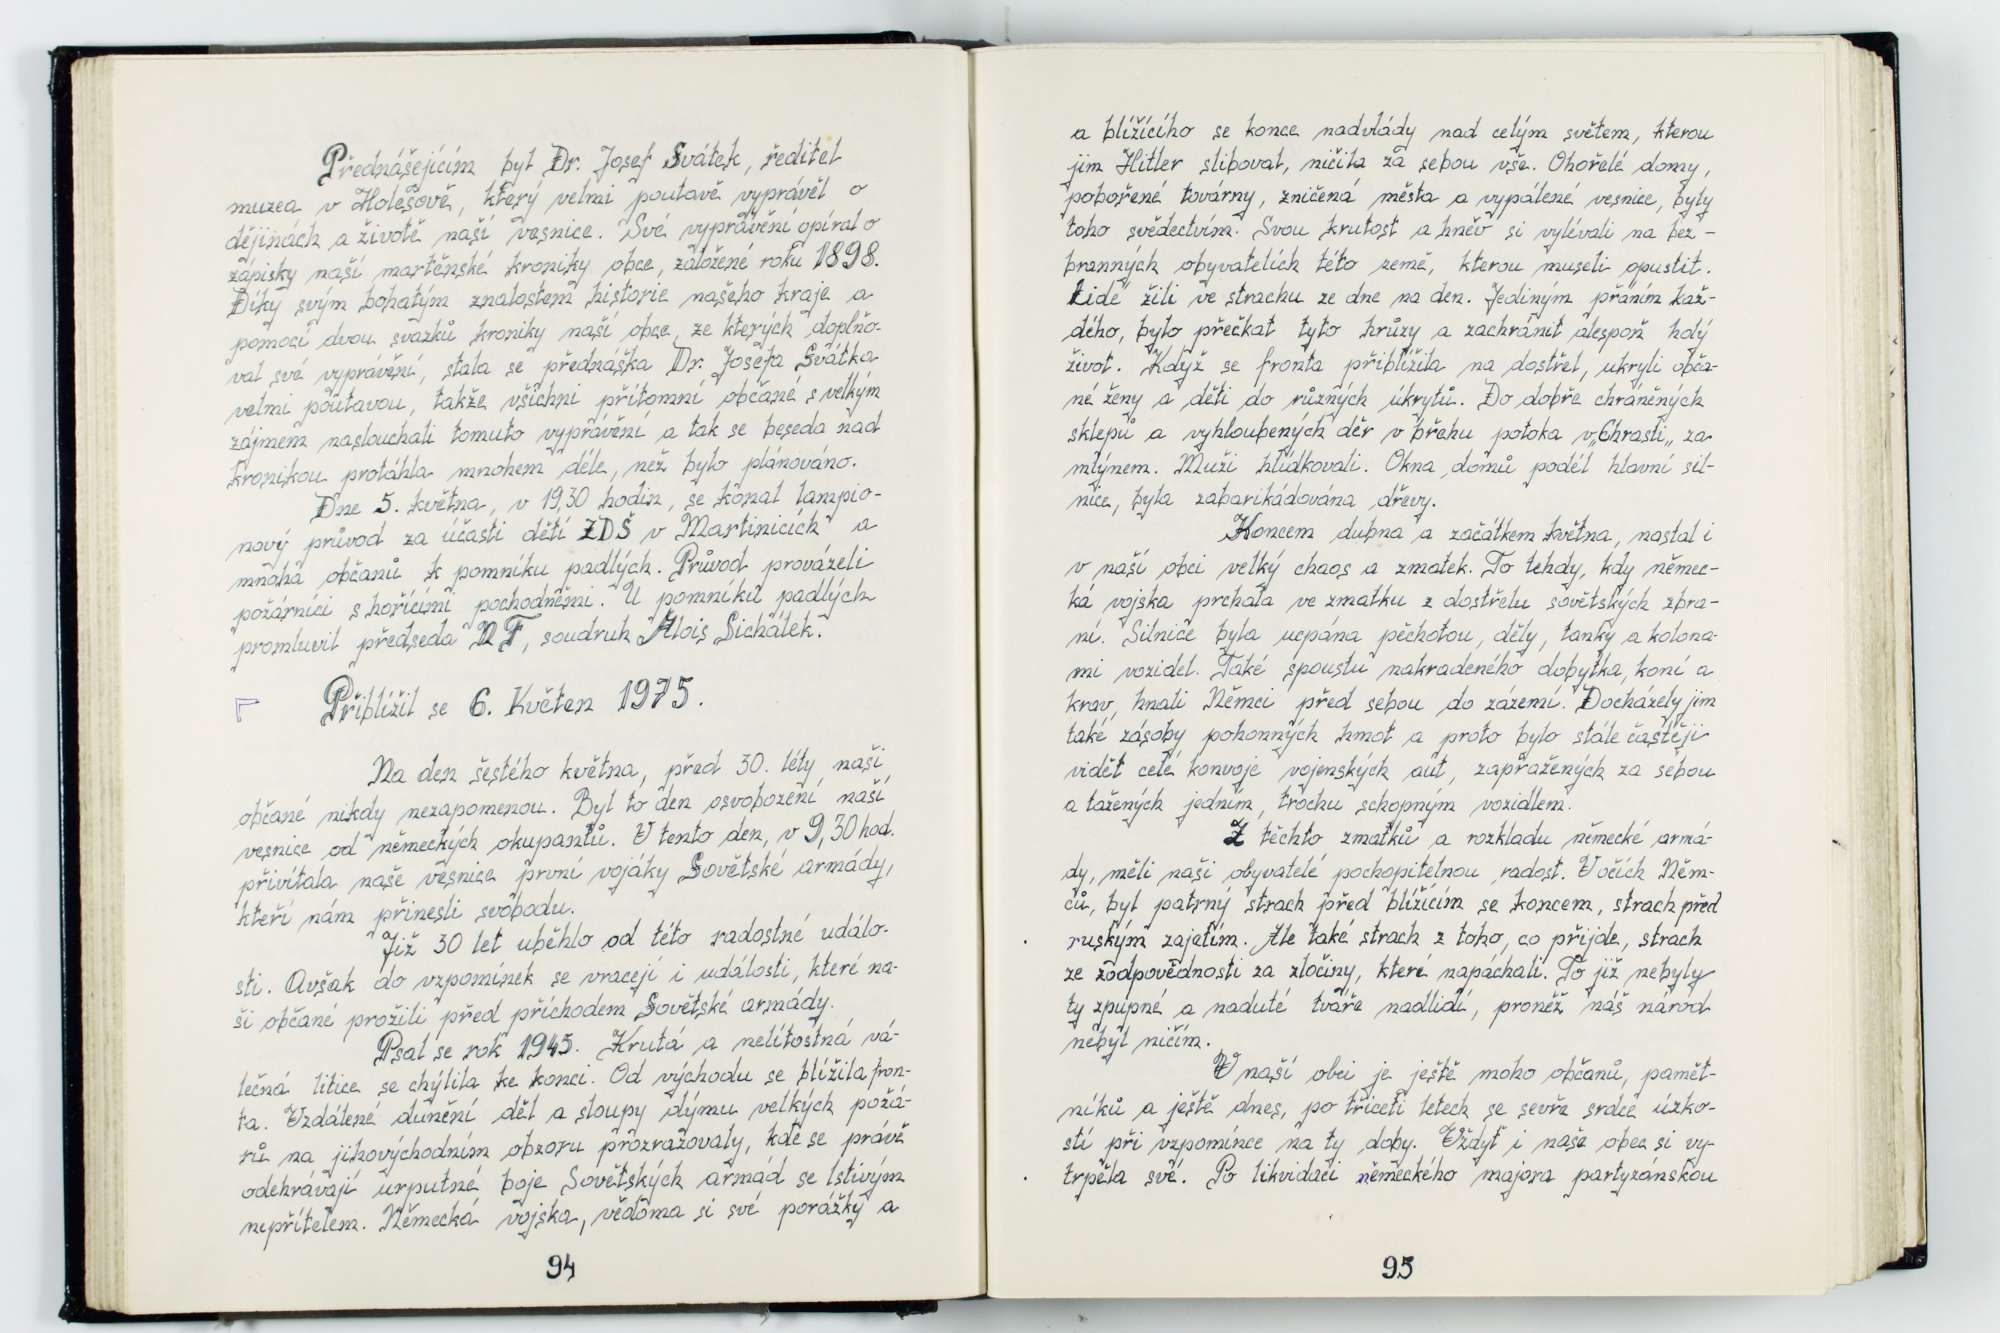 Přednášejícím byl Dr. Josef Svátek, ředitel
muzea v Holešově, který velmi poutavě vyprávěl o
dějinách a životě naší vesnice. Své vyprávění opíral o
zápisky naší martěnské kroniky obce, založené roku 1898.
Díky svým bohatým znalostem historie našeho kraje a
pomocí dvou svazků kroniky naší obce, ze kterých doplňo-
val své vyprávění, stala se přednáška Dr. Josefa Svátka
velmi poutavou, takže všichni přítomní občané s velkým
zájmem naslouchali tomuto vyprávění a tak se beseda nad
kronikou protáhla mnohem déle, než bylo plánováno.
Dne 5. května, v 19,30 hodin, se konal lampio-
nový průvod za účasti dětí ZDŠ v Martinicích a
mnoha občanů k pomníku padlých. Průvod provázeli
požárníci s hořícími pochodněmi. U pomníku padlých
promluvil předseda NF, soudruh Alois Sichálek.
Přiblížil se 6. Květen 1975.
Na den šestého května, před 30. léty, naši
občané nikdy nezapomenou. Byl to den osvobození naší
vesnice od německých okupantů. V tento den, v 9,30 hod.
přivítala naše vesnice první vojáky Sovětské armády,
kteří nám přinesli svobodu.
Již 30 let uběhlo od této radostné událo-
sti. Avšak do vzpomínek se vracejí i události, které na-
ši občané prožili před příchodem Sovětské armády.
Psal se rok 1945. Krutá a nelítostná vá-
lečná litice se chýlila ke konci. Od východu se blížila fron-
ta. Vzdálené dunění děl a sloupy dýmu velkých požá-
rů na jihovýchodním obzoru prozrazovaly, kde se právě
odehrávají urputné boje Sovětských armád se lstivým
nepřítelem. Německá vojska, vědoma si své porážky a
94
a blížícího se konce nadvlády nad celým světem, kterou
jim Hitler sliboval, ničila za sebou vše. Ohořelé domy,
pobořené továrny, zničená města a vypálené vesnice, byly
toho svědectvím. Svou krutost a hněv si vylévali na bez-
branných obyvatelích této země, kterou museli opustit.
Lidé žili ve strachu ze dne na den. Jediným přáním kaž-
dého, bylo přečkat tyto hrůzy a zachránit alespoň holý
život. Když se fronta přiblížila na dostřel, ukryli obča-
né ženy a děti do různých úkrytů. Do dobře chráněných
sklepů a vyhloubených děr v břehu potoka v„Chrasti„ za
mlýnem. Muži hlídkovali. Okna domů podél hlavní sil-
nice, byla zabarikádována dřevy.
Koncem dubna a začátkem května, nastal i
v naší obci velký chaos a zmatek. To tehdy, kdy němec-
ká vojska prchala ve zmatku z dostřelu sovětských zbra-
ní. Silnice byla ucpána pěchotou, děly, tanky a kolona-
mi vozidel. Také spoustu nakradeného dobytka, koní a
krav, hnali Němci před sebou do zázemí. Docházely jim
také zásoby pohonných hmot a proto bylo stále častěji
vidět celé konvoje vojenských aut, zapřažených za sebou
a tažených jedním, trochu schopným vozidlem.
Z těchto zmatků a rozkladu německé armá-
dy, měli naši obyvatelé pochopitelnou radost. V očích Něm-
ců, byl patrný strach před blížícím se koncem, strach před
ruským zajetím. Ale také strach z toho, co přijde, strach
ze zodpovědnosti za zločiny, které napáchali. To již nebyly
ty zpupné a naduté tváře nadlidí, proněž náš národ
nebyl ničím.
V naší obci je ještě moho občanů, pamět-
níků a ještě dnes, po třiceti letech se sevře srdce úzko-
stí při vzpomínce na ty doby. Vždyť i naše obec si vy-
trpěla své. Po likvidaci německého majora partyzánskou
95